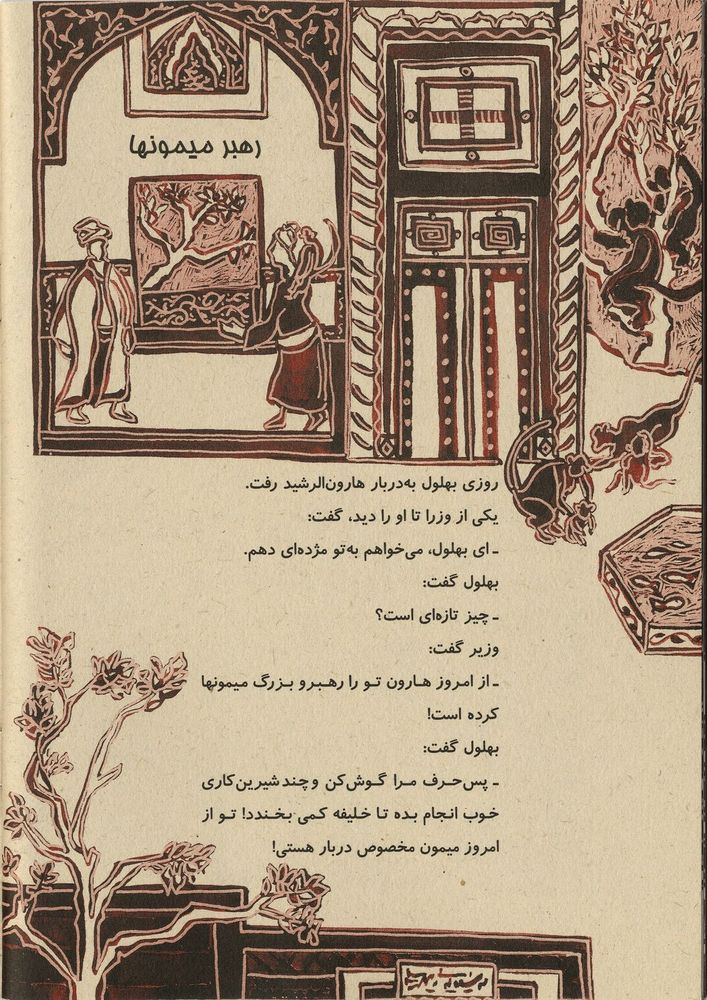 رهبر میمونها
روزی بهلول به‌دربار هارون‌الرشید رفت.
یکی از وزرا تا او را دید، گفت:
ـ ای بهلول، می‌خواهم به‌تو مژده‌ای دهم.
بهلول گفت:
ـ چیز تازه‌ای است؟
وزیر گفت:
ـ از امروز هارون تو را رهبرو بزرگ میمونها
کرده است!
بهلول گفت:
ـ پس‌حرف مرا گوش‌کن و چند شیرین‌کاری
خوب انجام بده تا خلیفه کمی بخندد! تو از
امروز میمون مخصوص دربار هستی!